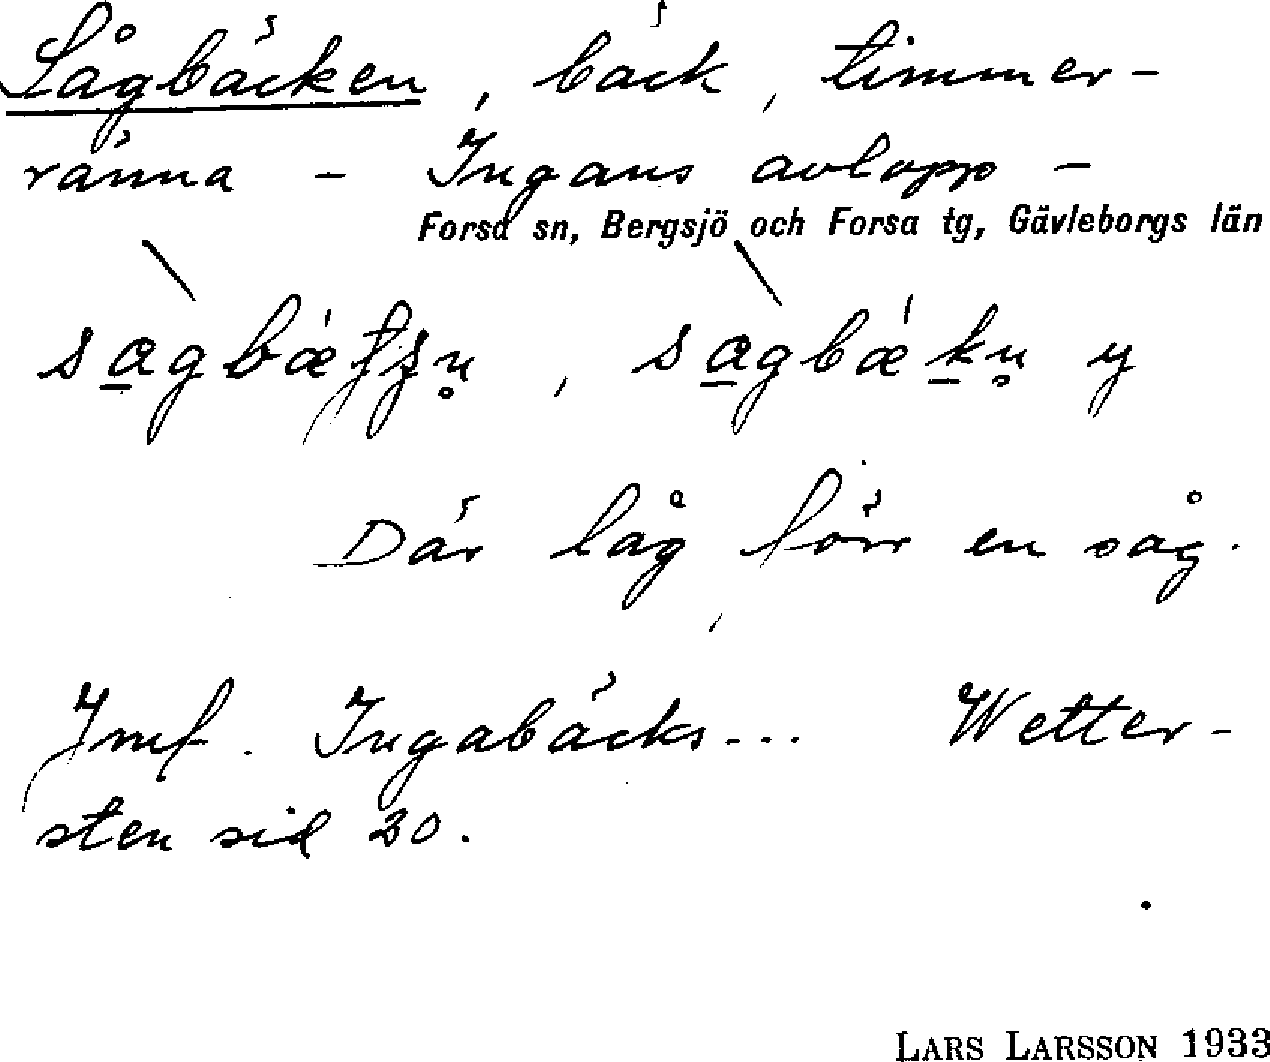 Sågbäcken, bäck, timmer-
ränna - Ingans avlopp -
Forsa sn, Bergsjö och Forsa tg, Gävleborgs län
Där låg förr en såg.
Jmf. Ingabäcks... Wetter-
sten sid 20.
LARS LARSSON 1933